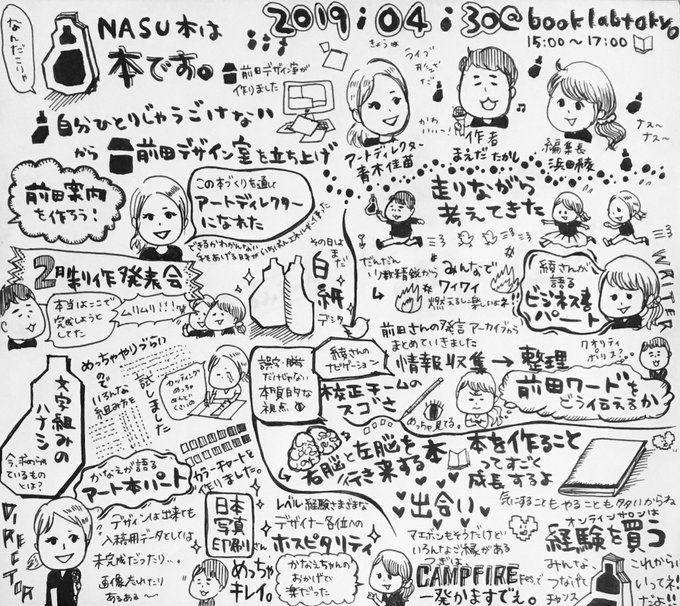 なんだこりゃ
NASU本は
本です。
前田デザイン室が
作りました
2019:04:30@booklabtokyo
15:00〜17:00
自分ひとりじゃうごけない
から 前田デザイン室を立ち上げ
きょうは
ライブ
かわいい〜!
アートディレクター
青木佳苗
作者
まえだたかし
編集長
浜田綾
ナス〜
ナス〜
前田案内
を作ろう!
この本づくりを通して
アートディレクター
になれた
走りながら
考えてきた
2月制作発表会
本当はここで
完成しようと
してた
ムリムリ!!!
その日は
まだ
白紙
デジタ
だんだん
少数精鋭から
みんなで
ワイワイ
燃えるし楽しいよね!!
綾さんが
語る
ビジネス書
パート
WRITER
前田さんの発言アーカイブから
まとめていきました
情報収集→整理
クオリティ
ポリス
前田ワードを
どう伝えるか
綾さんの
ナビゲーション
校正チームの
スゴさ
めっちゃ見てる。
誤字・脱字
だけじゃない
本質的な
視点
めっちゃ作りづらい
ので
いろんな
組みを
試しました
文字組みの
ハナシ
今、求められ
ているもの
とは?
かなえが語る
アート本パート
カラーチャートを
作りました。
右脳と左脳を
行き来する本
本を作ること
ってすごく
成長するよ
DIRECTOR
デザインは出来ても
入稿用データとしては
未完成だったり、、
画像荒れたり
あるある〜
日本
写真
印刷さん
めっちゃ
キレイ。
レベル経験さまざまな
デザイナー各位への
ホスピタリティ
かなえちゃんの
おかげで
楽だった
出合い
マエボンもそうだけど
いろんなご縁がある
つぎは
CAMPFIREさんで
一発かますでぇ。
気にすることもやることも多いからね
オンラインサロンは
経験を買う
みんな
つなげて
チャンス
これから
いってえ!
だよ!!